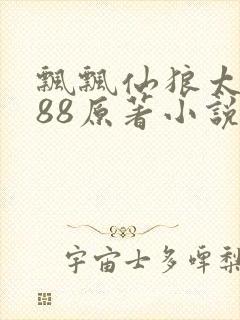 飘飘仙狼太
88原著小說
宇宙士多啤梨